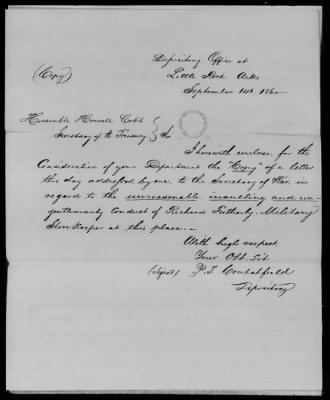 Depository Office at
(Copy)
Little Rock Arks
September 1st. 1860
Honorable Howell Cobb
Secretary of the Treasury } Sir
I herewith enclose, for the
Consideration of your Department the "Copy" of a letter
this day addressed by me, to the Secretary of War, in
regard to the unreasonable, insulting and un-
gentlemanly Conduct of Richard Fatherly, Military
Store Keeper at this place.—
With high respect
Your Obt. Svt.
(Signed) P. T. Crutchfield
Depositary